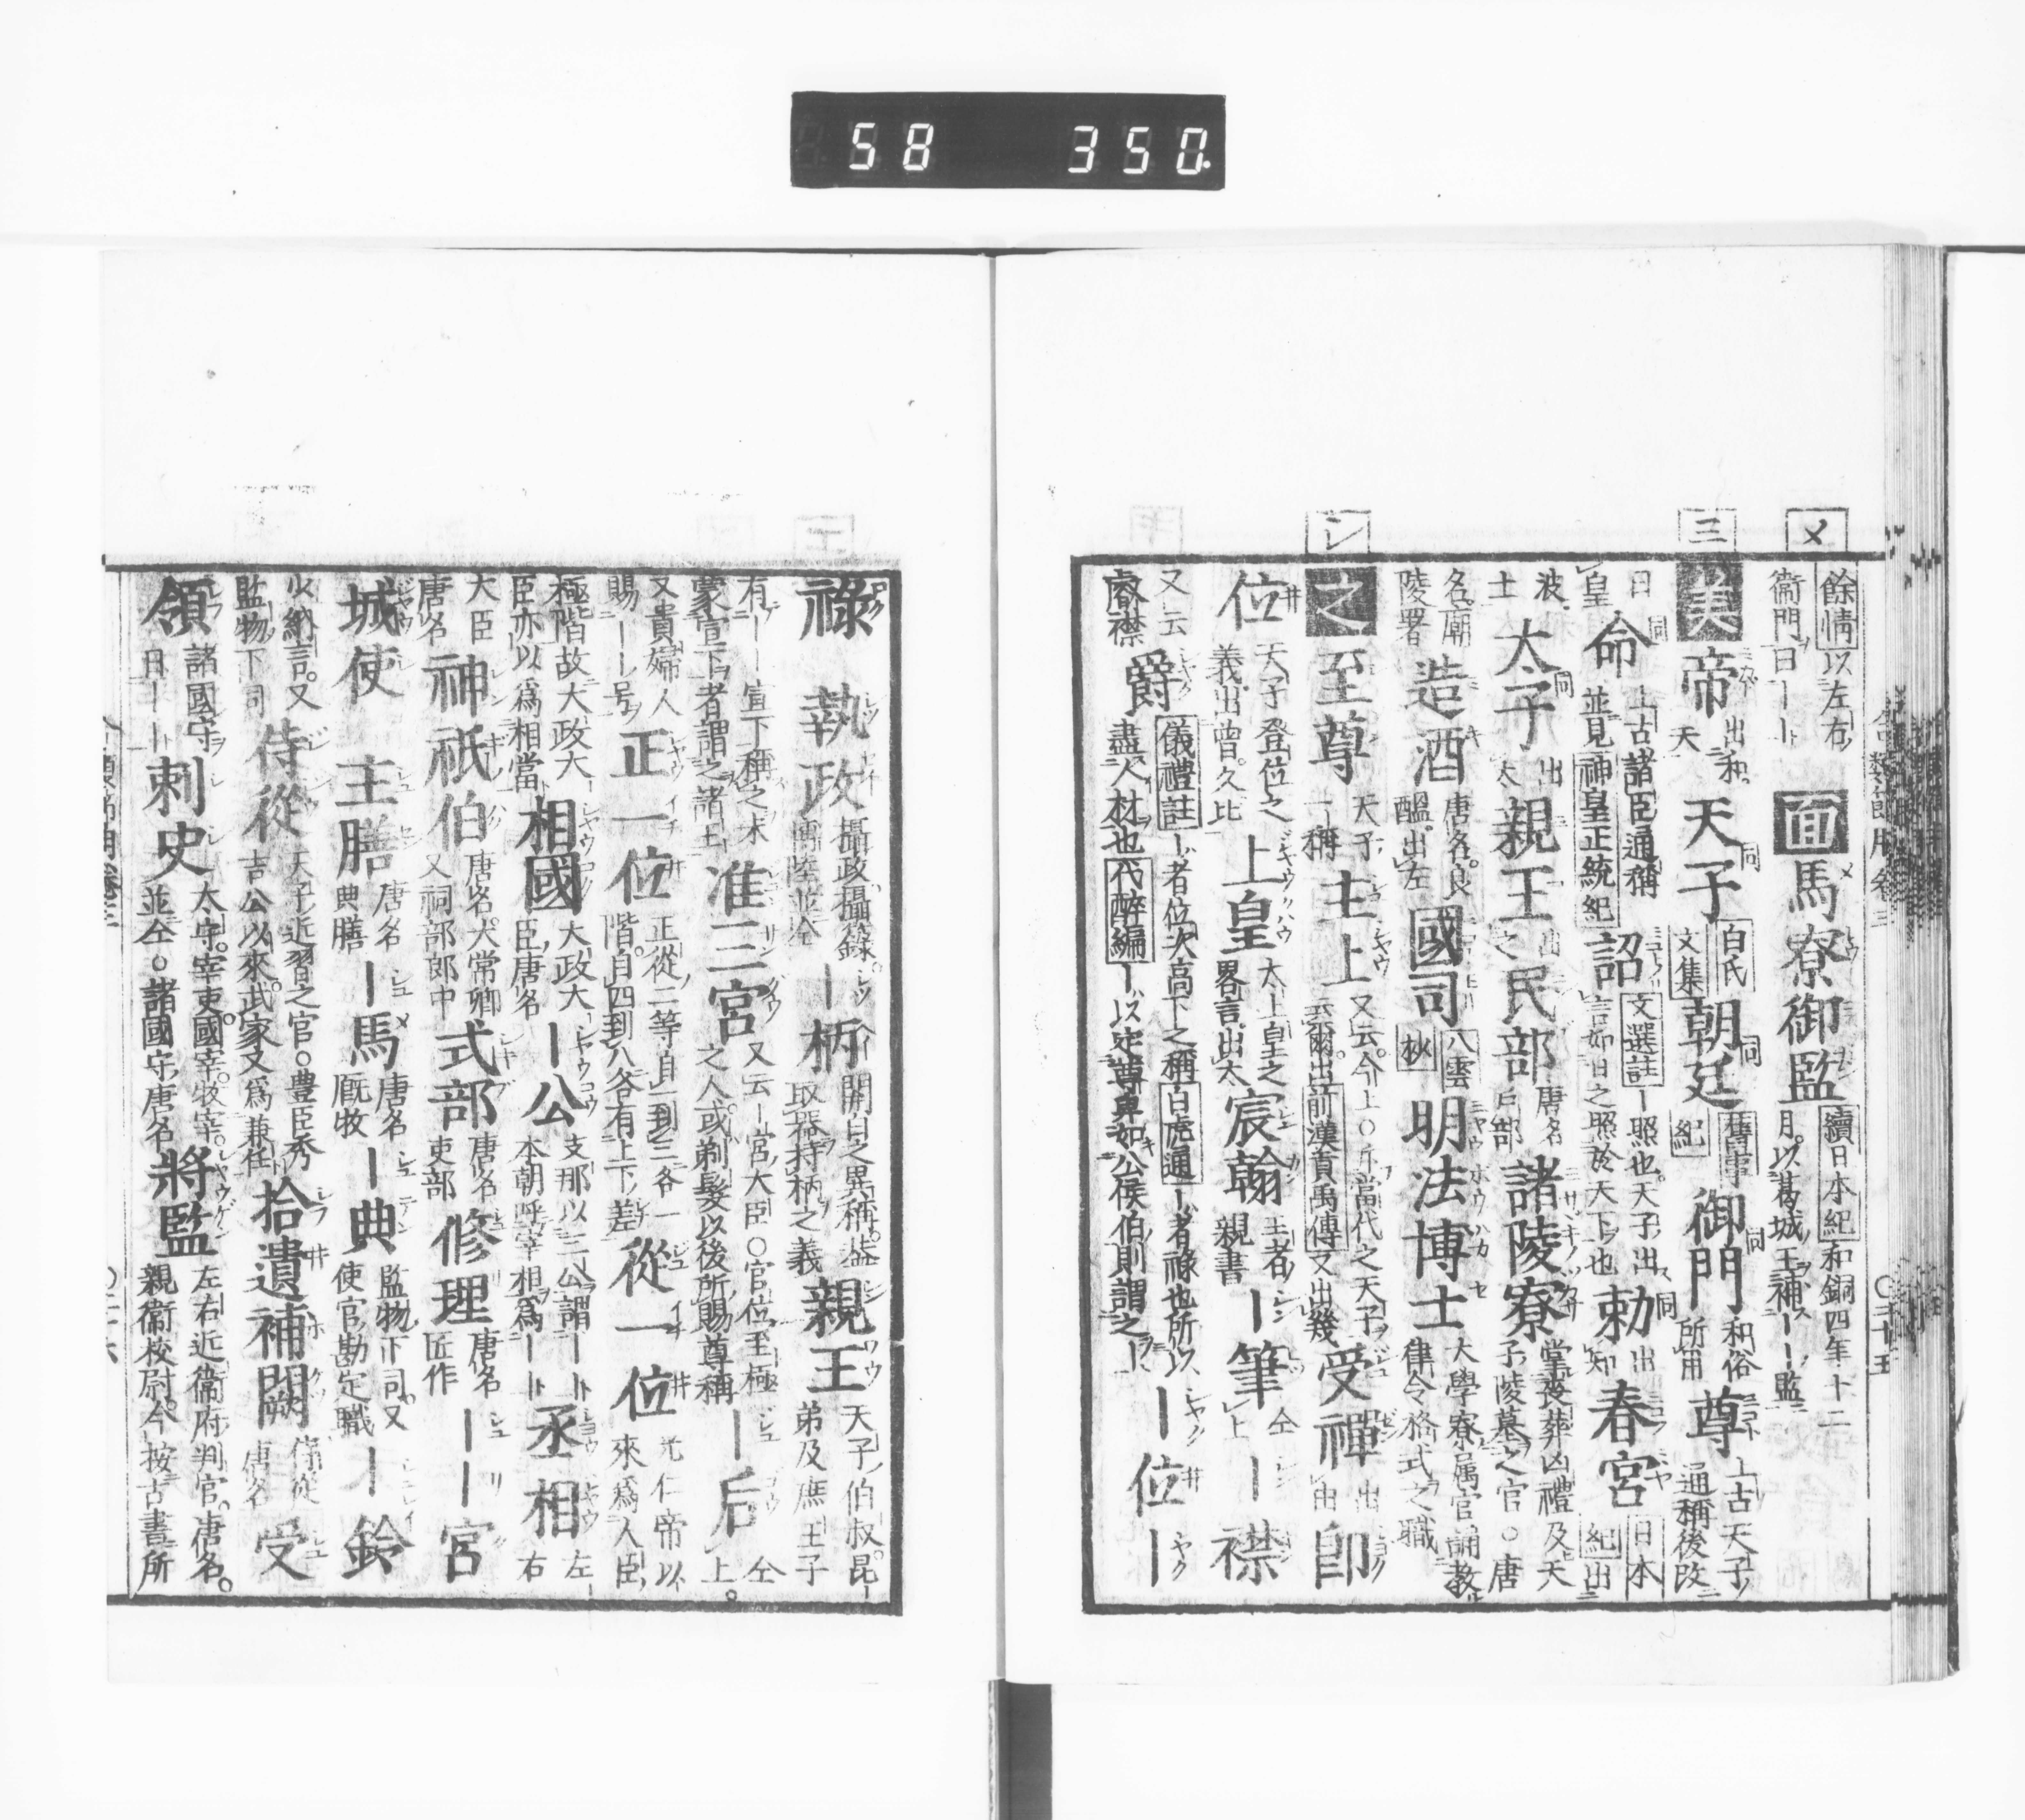 58 350
メ
三
シ
餘情以左右
衞門曰｜｜
面 馬寮御監 續日本紀和銅四年十二
月以葛城王補｜｜監
美 帝 出和
天
天子 同 白氏
文集
朝廷 同 舊事
紀
御門 同 和俗
所用
尊 上古天子ノ
通稱後改
曰
皇
命 同 上古諸臣通稱
並見神皇正統紀
詔 文選註｜照也天子出
言如日之照於天下也
勅 同 出
知
春宮 日本
紀出
波
士
太子 同 出
太
親王 出
之
民部 唐名
戸部
諸陵寮 掌喪葬凶禮及天
子陵墓之官○唐
名廟
陵署
造酒 唐名良
醞出左
國司 八雲
秋
明法博士 大學寮属官誦教
律令格式之職
之 至尊 天子
一稱
主上 又云今上○斥當代之天子
云爾出前漢貢禹傳又出幾
受禪 出
出
卽
位 天子登位之
義出曾久比
上皇 太上皇之
畧言出太
宸翰 王者
親書
｜筆 仝
上
｜襟
又云
睿襟
爵 儀禮註｜者位次高下之稱白虎通｜者祿也所以
盡人材也代醉編｜以定尊卑如公侯伯則謂之｜
｜位｜
祿
執政 攝政攝籙
博陸並仝
｜柄 開白之異稱盖
取器持柄之義
親王 天子伯叔昆
弟及庶王子
有｜｜宣下稱之未
蒙宣下者謂之諸王
准三宮 又云｜宮大臣○官位至極
之人或剃髮以後所賜尊稱
｜后 仝
上
又貴婦人
賜｜｜号
正一位 正從二等自一到三各一
階自四到八各有上下差
從一位 光仁帝以
來爲人臣
極階故大政大
臣亦以爲相當
相國 大政大
臣唐名
｜公 支那以三公謂｜｜
本朝呼宰相爲｜｜
丞相 左
右
大臣
唐名
神祇伯 唐名大常卿
又祠部郎中
式部 唐名
吏部
修理 唐名
匠作
｜｜宮
城使
主膳 唐名
典膳
｜馬 唐名
厩牧
｜典 監物下司又
使官勘定職
｜鈴
以納言又
監物下司
侍從 天子近習之官○豊臣秀
吉公以來武家又爲兼任
拾遺補闕 侍從
唐名
受
領 諸國守
曰｜｜
刺史 太守宰吏國宰牧宰
並仝○諸國守唐名
將監 左右近衞府判官唐名
親衞校尉今按古書所